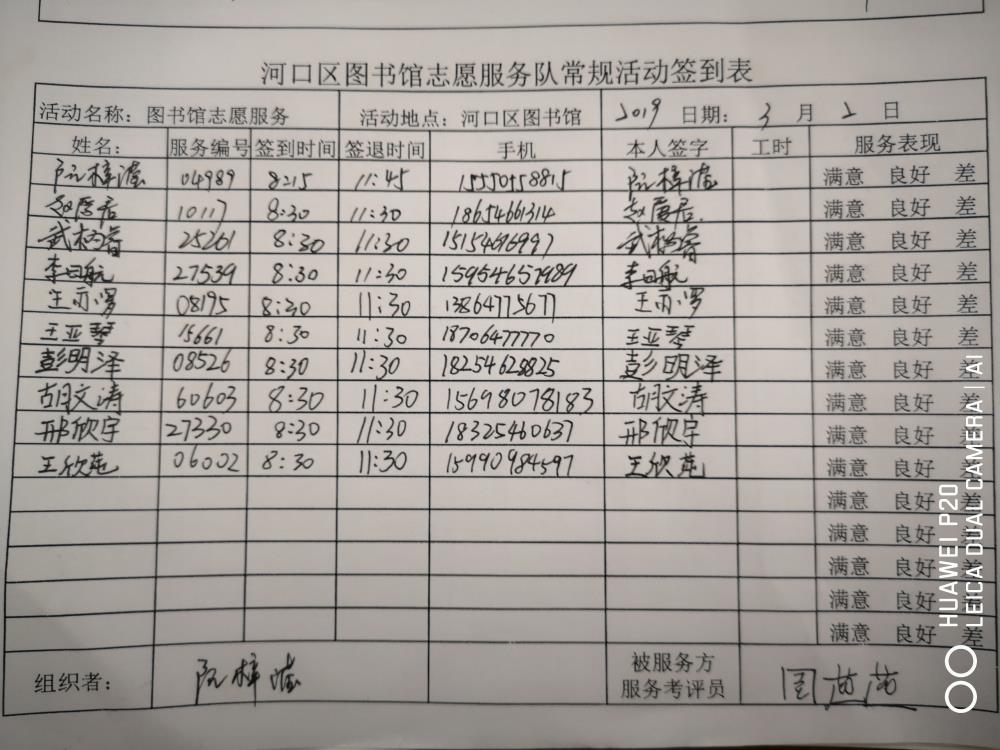 河口区图书馆志愿服务队常规活动签到表
活动名称：图书馆志愿服务 活动地点：河口区图书馆 2019 日期：3 月 2 日
姓名： 服务编号 签到时间 签退时间 手机 本人签字 工时 服务表现
阮梓 04989 8:15 11:45 15550558815 阮梓 满意 良好 差
赵 10117 8:30 11:30 18654661314 赵 满意 良好 差
武 25261 8:30 11:30 15154696997 武 满意 良好 差
李日航 27539 8:30 11:30 15954657989 李日航 满意 良好 差
王 08195 8:30 11:30 13864775677 王 满意 良好 差
王亚琴 15661 8:30 11:30 18706477770 王亚琴 满意 良好 差
彭明泽 08526 8:30 11:30 18254628825 彭明泽 满意 良好 差
胡文涛 60603 8:30 11:30 15698078183 胡文涛 满意 良好 差
邢欣宇 27330 8:30 11:30 18325460637 邢欣宇 满意 良好 差
王欣苑 06002 8:30 11:30 15990984597 王欣苑 满意 良好 差
满意 良好 差
满意 良好 差
满意 良好 差
满意 良好 差
满意 良好 差
组织者： 阮梓 被服务方
服务考评员
HUAWEI P20
LEICA DUAL CAMERA | AI